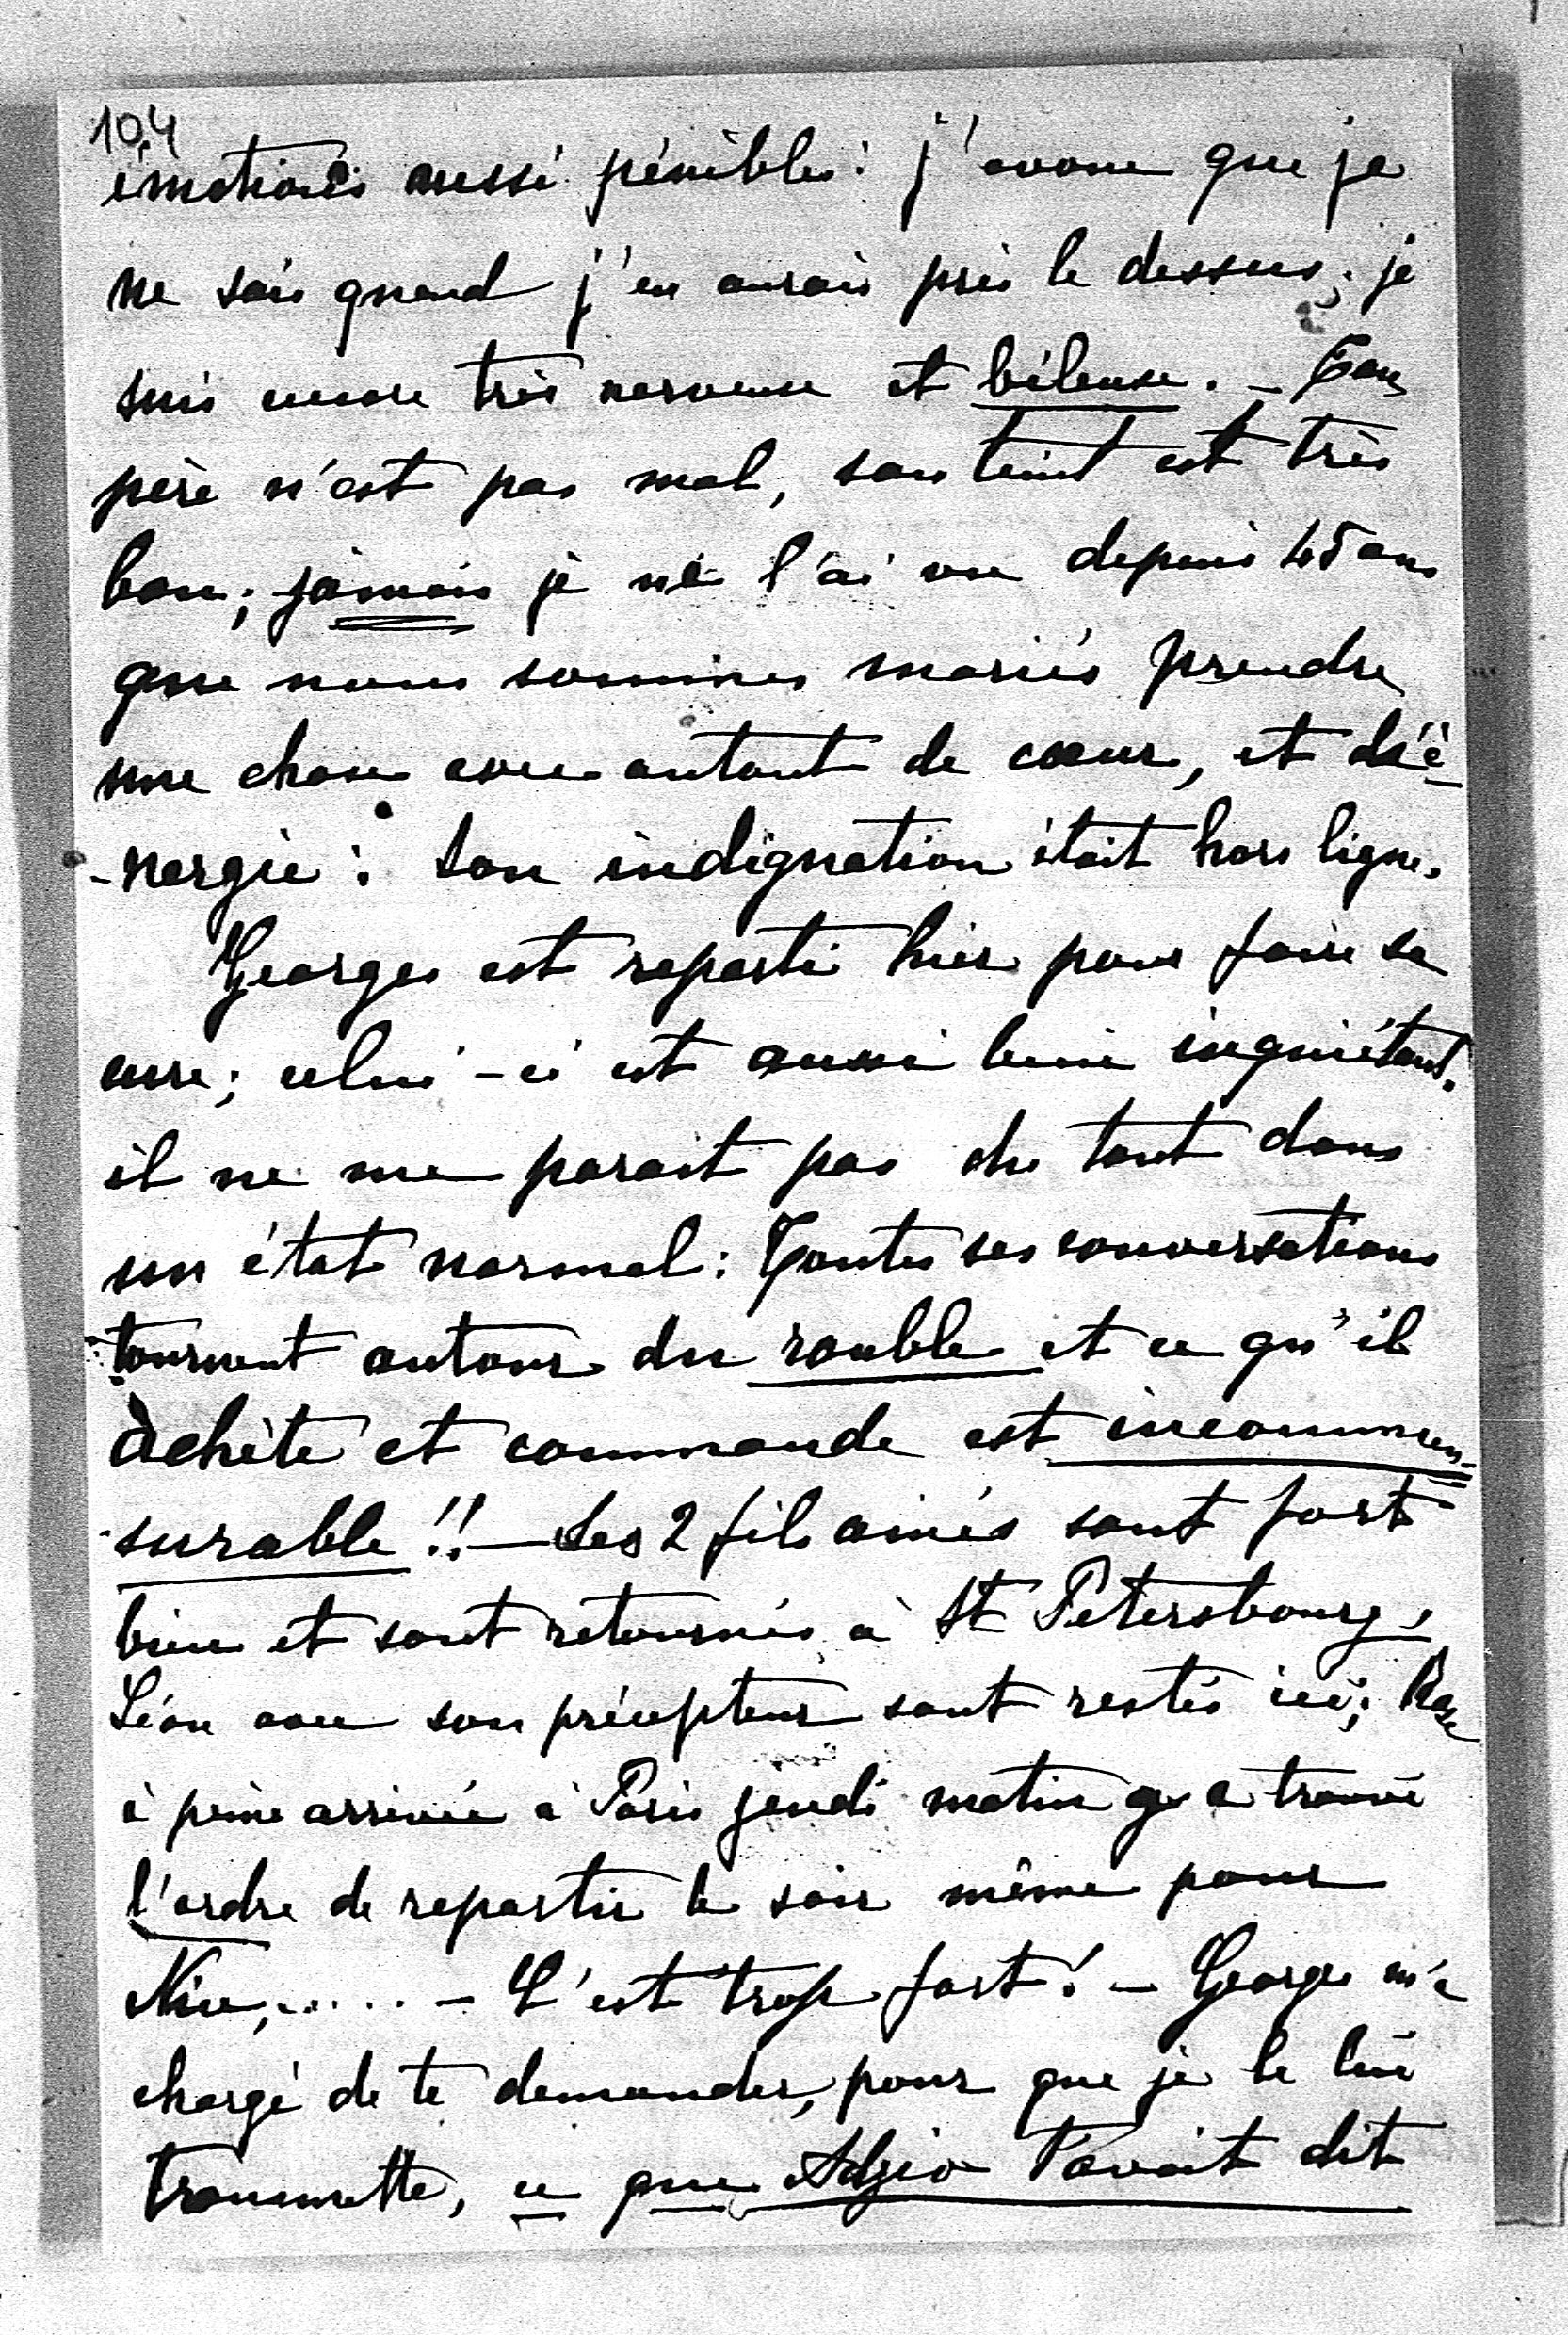 104
émotions aussi pénibles: j'avoue que je
ne sais quand j'en aurais pris le dessus; je
suis encore très nerveuse et bileuse. — Ton
père n'est pas mal, son teint est très
bon; jamais je ne l'ai vu depuis 45 ans
que nous sommes mariés prendre
une chose avec autant de cœur, et d'é-
-nergie: son indignation était hors ligne.
Georges est reparti hier pour faire sa
cure; celui-ci est aussi bien inquiétant.
il ne me parait pas du tout dans
un état normal: Toutes ses conversations
tournent autour du rouble et ce qu'il
achète et commande est incommen-
-surable!! — Les 2 fils ainés sont fort
bien et sont retournés à St Petersbourg,
Léon avec son précepteur sont restés ici;
à peine arrivée à Paris jeudi matin a trouvé
l'ordre de repartir le soir même pour
Nice,..... — C'est trop fort! — Georges m'a
chargé de te demander, pour que je le lui
transmette, ce que Adgio t'avait dit